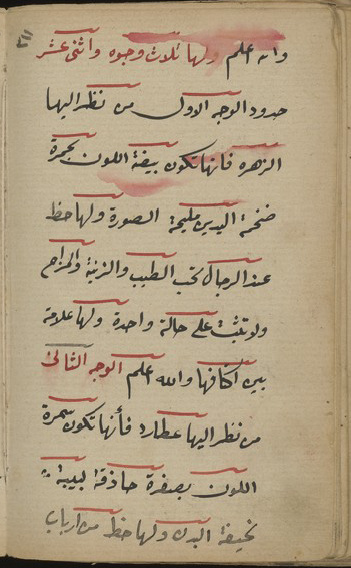 والله اعلم ولها ثلاث وجوه واثنى عشر
حدود الوجه الاول من نظر اليها
الزهره فانها تكون بيضة اللون بحمرة
ضخمة اليدين مليحة الصورة ولها حظ
عند الرجال تحب الطيب والزينة والمزاح
ولا تثبت على حالة واحدة ولها علامة
بين اكتافها والله اعلم الوجه الثانى
من نظر اليها عطارد فأنها تكون بسمرة
اللون بصفرة حاذقة لبيبة
نحيفة البدن ولها حظ من ارباب